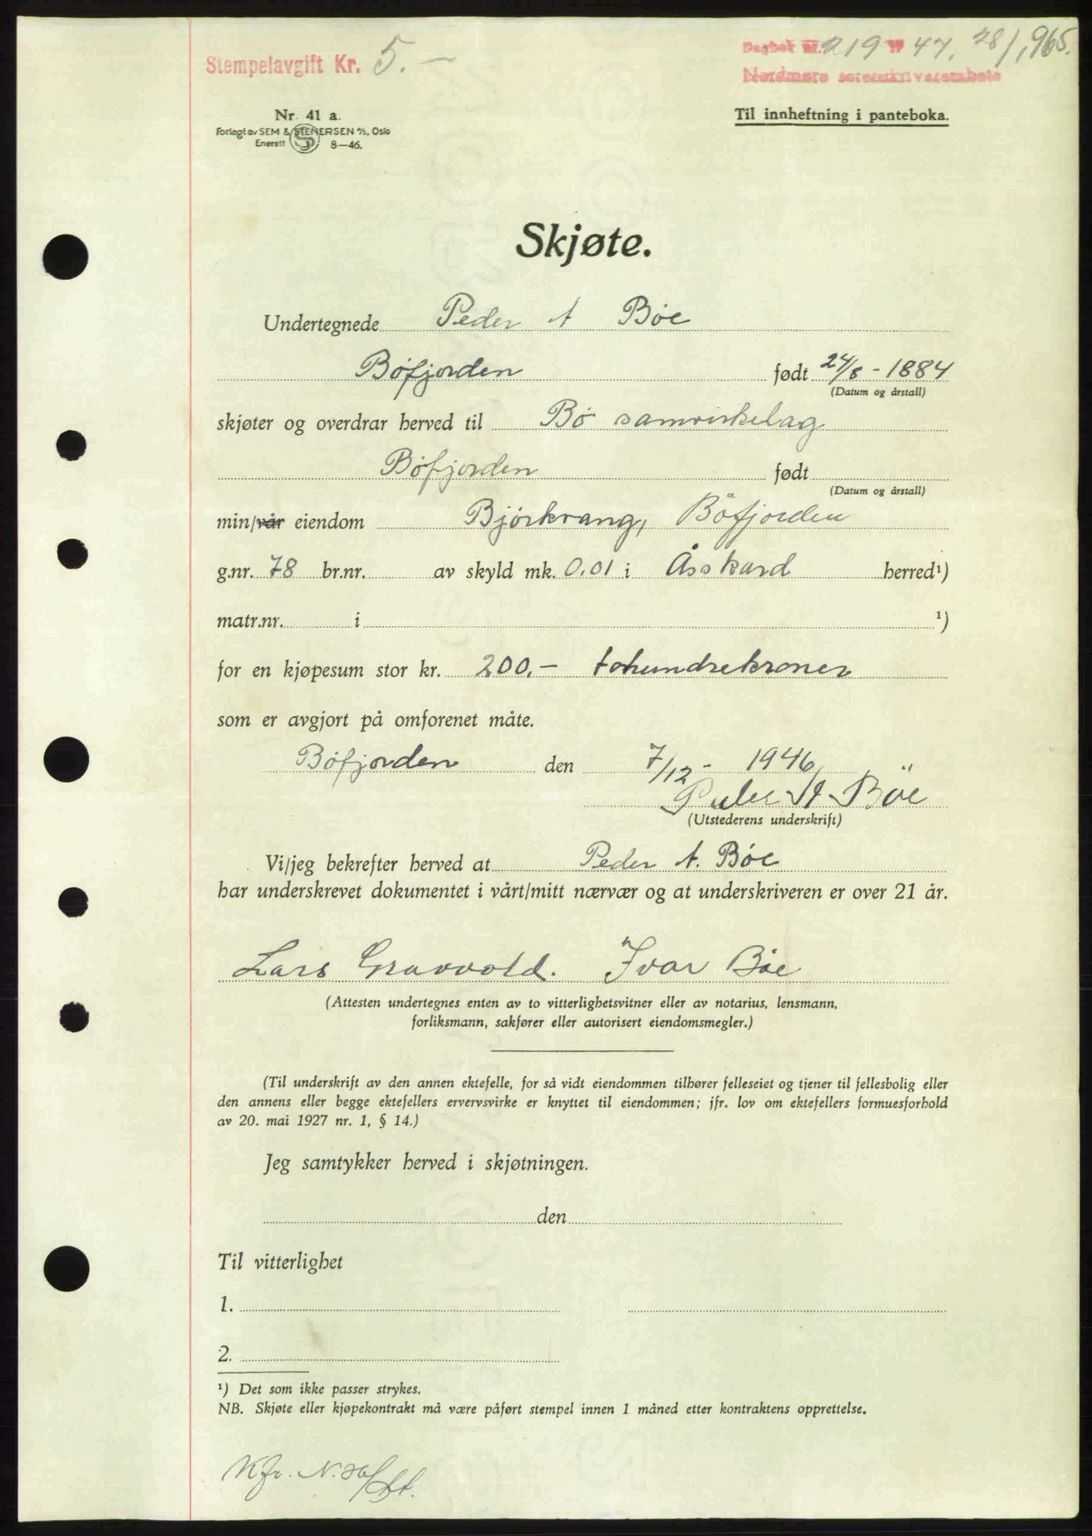 Stempelavgift Kr. 5.–
Dagbok nr. 219 19 47. 28/1, 965.
Nordmøre sorenskriverembete
Nr. 41 a.
Forlagt av SEM & STENERSEN A/S, Oslo
Enerett 8–46.
Til innheftning i panteboka.
Skjøte.
Undertegnede Peder A Bøe
Bøfjorden født 24/8 - 1884
(Datum og årstall)
skjøter og overdrar herved til Bø samvirkelag
Bøfjorden født
(Datum og årstall)
min/vår eiendom Bjørkvang, Bøfjorden
g.nr. 78 br.nr. av skyld mk. 0.01 i Åsskard herred¹)
matr.nr. i ¹)
for en kjøpesum stor kr. 200,– tohundrekroner
som er avgjort på omforenet måte.
Bøfjorden den 7/12 - 1946
Peder A Böe
(Utstederens underskrift)
Vi/jeg bekrefter herved at Peder A. Bøe
har underskrevet dokumentet i vårt/mitt nærvær og at underskriveren er over 21 år.
Lars Gravvold. Ivar Bøe
(Attesten undertegnes enten av to vitterlighetsvitner eller av notarius, lensmann,
forliksmann, sakfører eller autorisert eiendomsmegler.)
(Til underskrift av den annen ektefelle, for så vidt eiendommen tilhører felleseiet og tjener til fellesbolig eller
den annens eller begge ektefellers ervervsvirke er knyttet til eiendommen; jfr. lov om ektefellers formuesforhold
av 20. mai 1927 nr. 1, § 14.)
Jeg samtykker herved i skjøtningen.
den
Til vitterlighet
1.
2.
¹) Det som ikke passer strykes.
NB. Skjøte eller kjøpekontrakt må være påført stempel innen 1 måned etter kontraktens opprettelse.
Kfr. N.